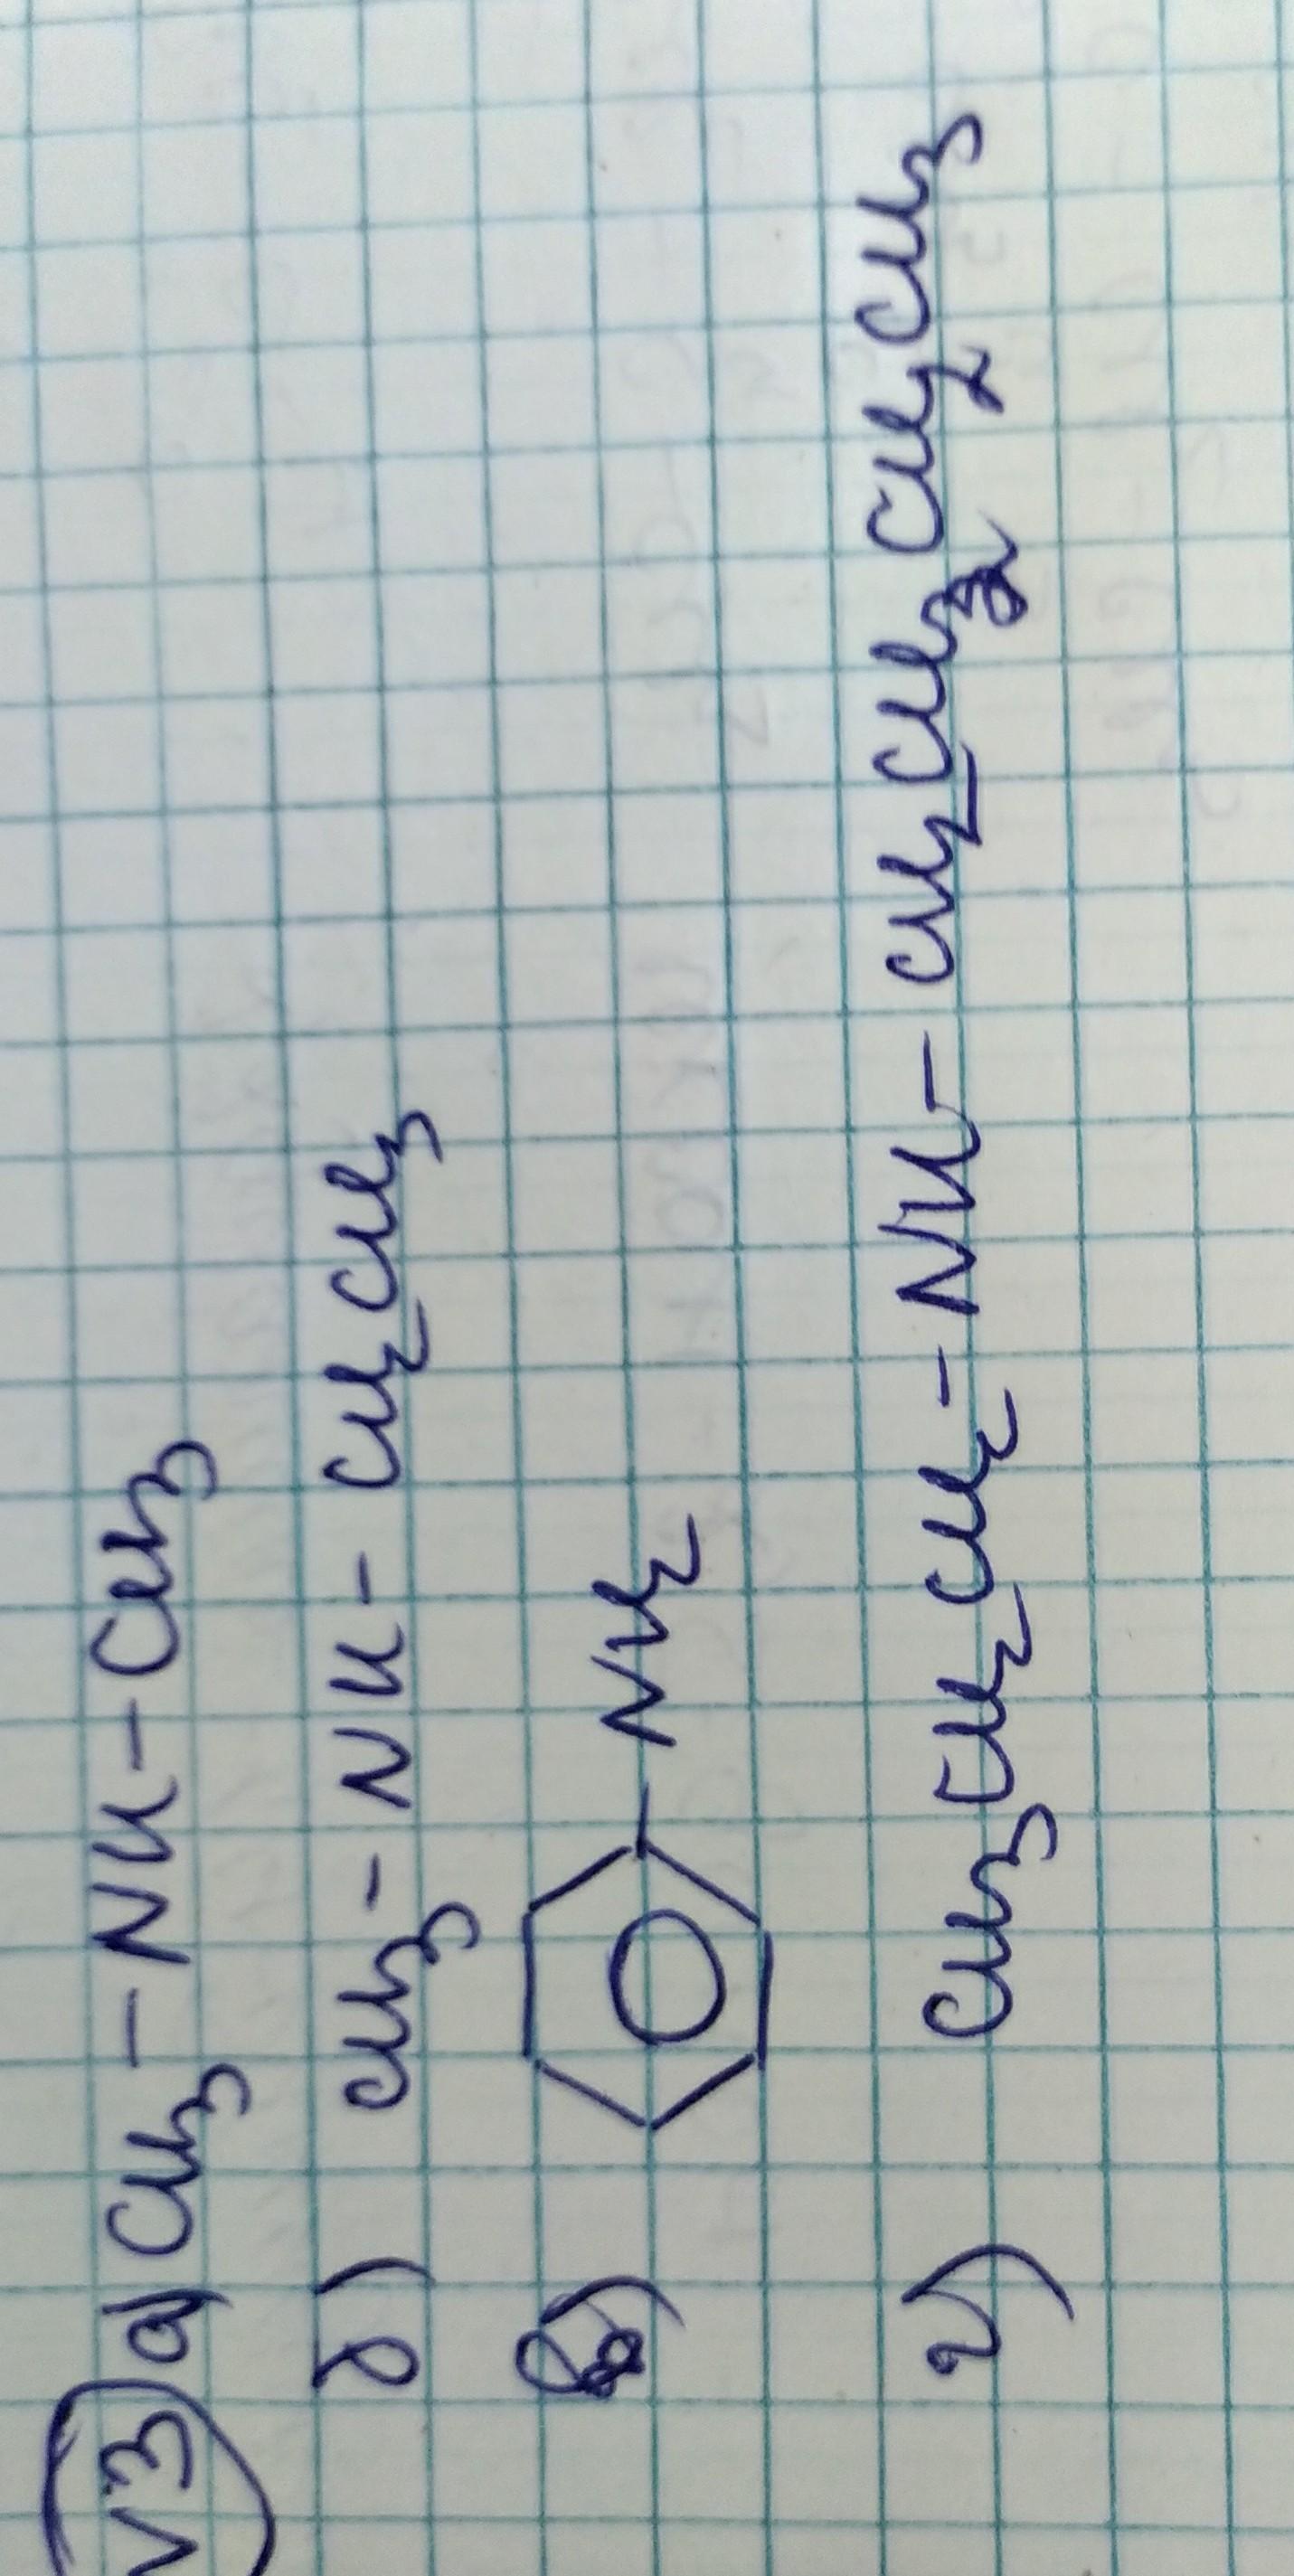 √3) а) CH3 - NH - CH3
б) CH3 - NH - CH2CH3
в) NH2
г) CH3CH2CH2 - NH - CH2CH2CH2CH3